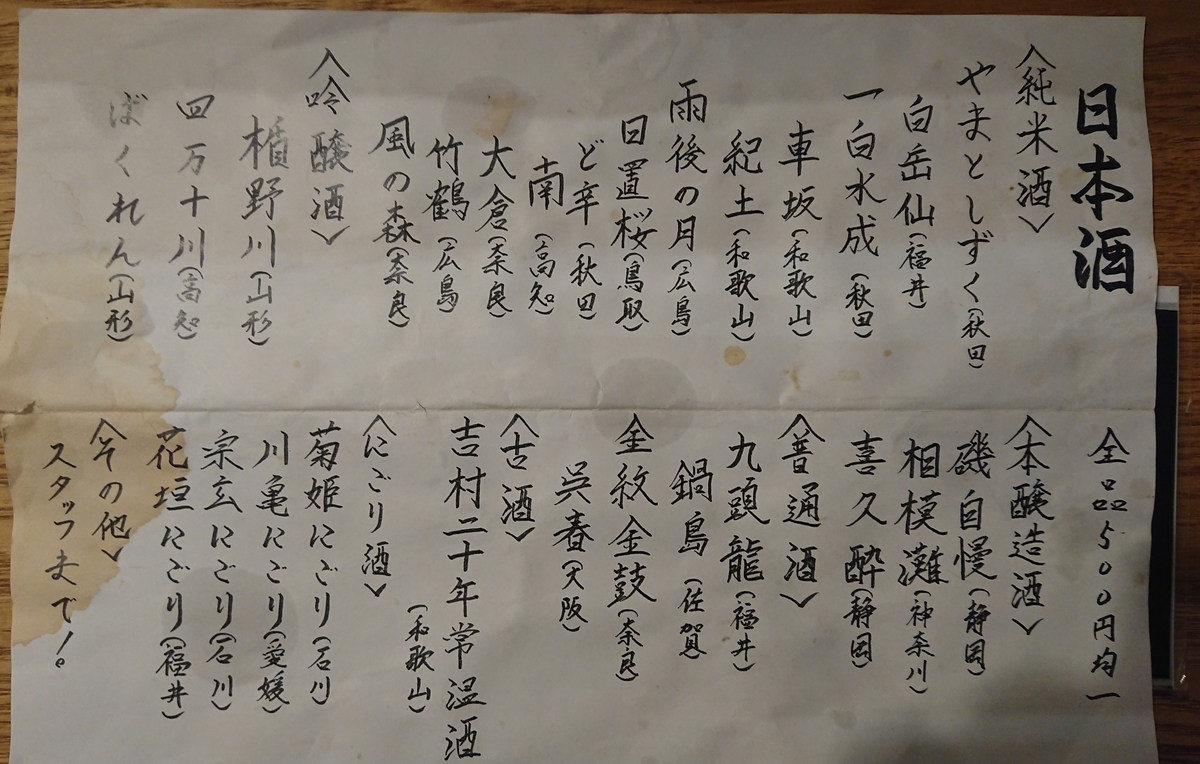 日本酒
〈純米酒〉
やまとしずく(秋田)
白岳仙(福井)
一白水成(秋田)
車坂(和歌山)
紀土(和歌山)
雨後の月(広島)
日置桜(鳥取)
ど辛(秋田)
南(高知)
大倉(奈良)
竹鶴(広島)
風の森(奈良)
〈吟醸酒〉
楯野川(山形)
四万十川(高知)
ばくれん(山形)
全品500円均一
〈本醸造酒〉
磯自慢(静岡)
相模灘(神奈川)
喜久酔(静岡)
〈普通酒〉
九頭龍(福井)
鍋島(佐賀)
金紋金鼓(奈良)
呉春(大阪)
〈古酒〉
吉村二十年常温酒
(和歌山)
〈にごり酒〉
菊姫にごり(石川)
川亀にごり(愛媛)
宗玄にごり(石川)
花垣にごり(福井)
〈その他〉
スタッフまで!